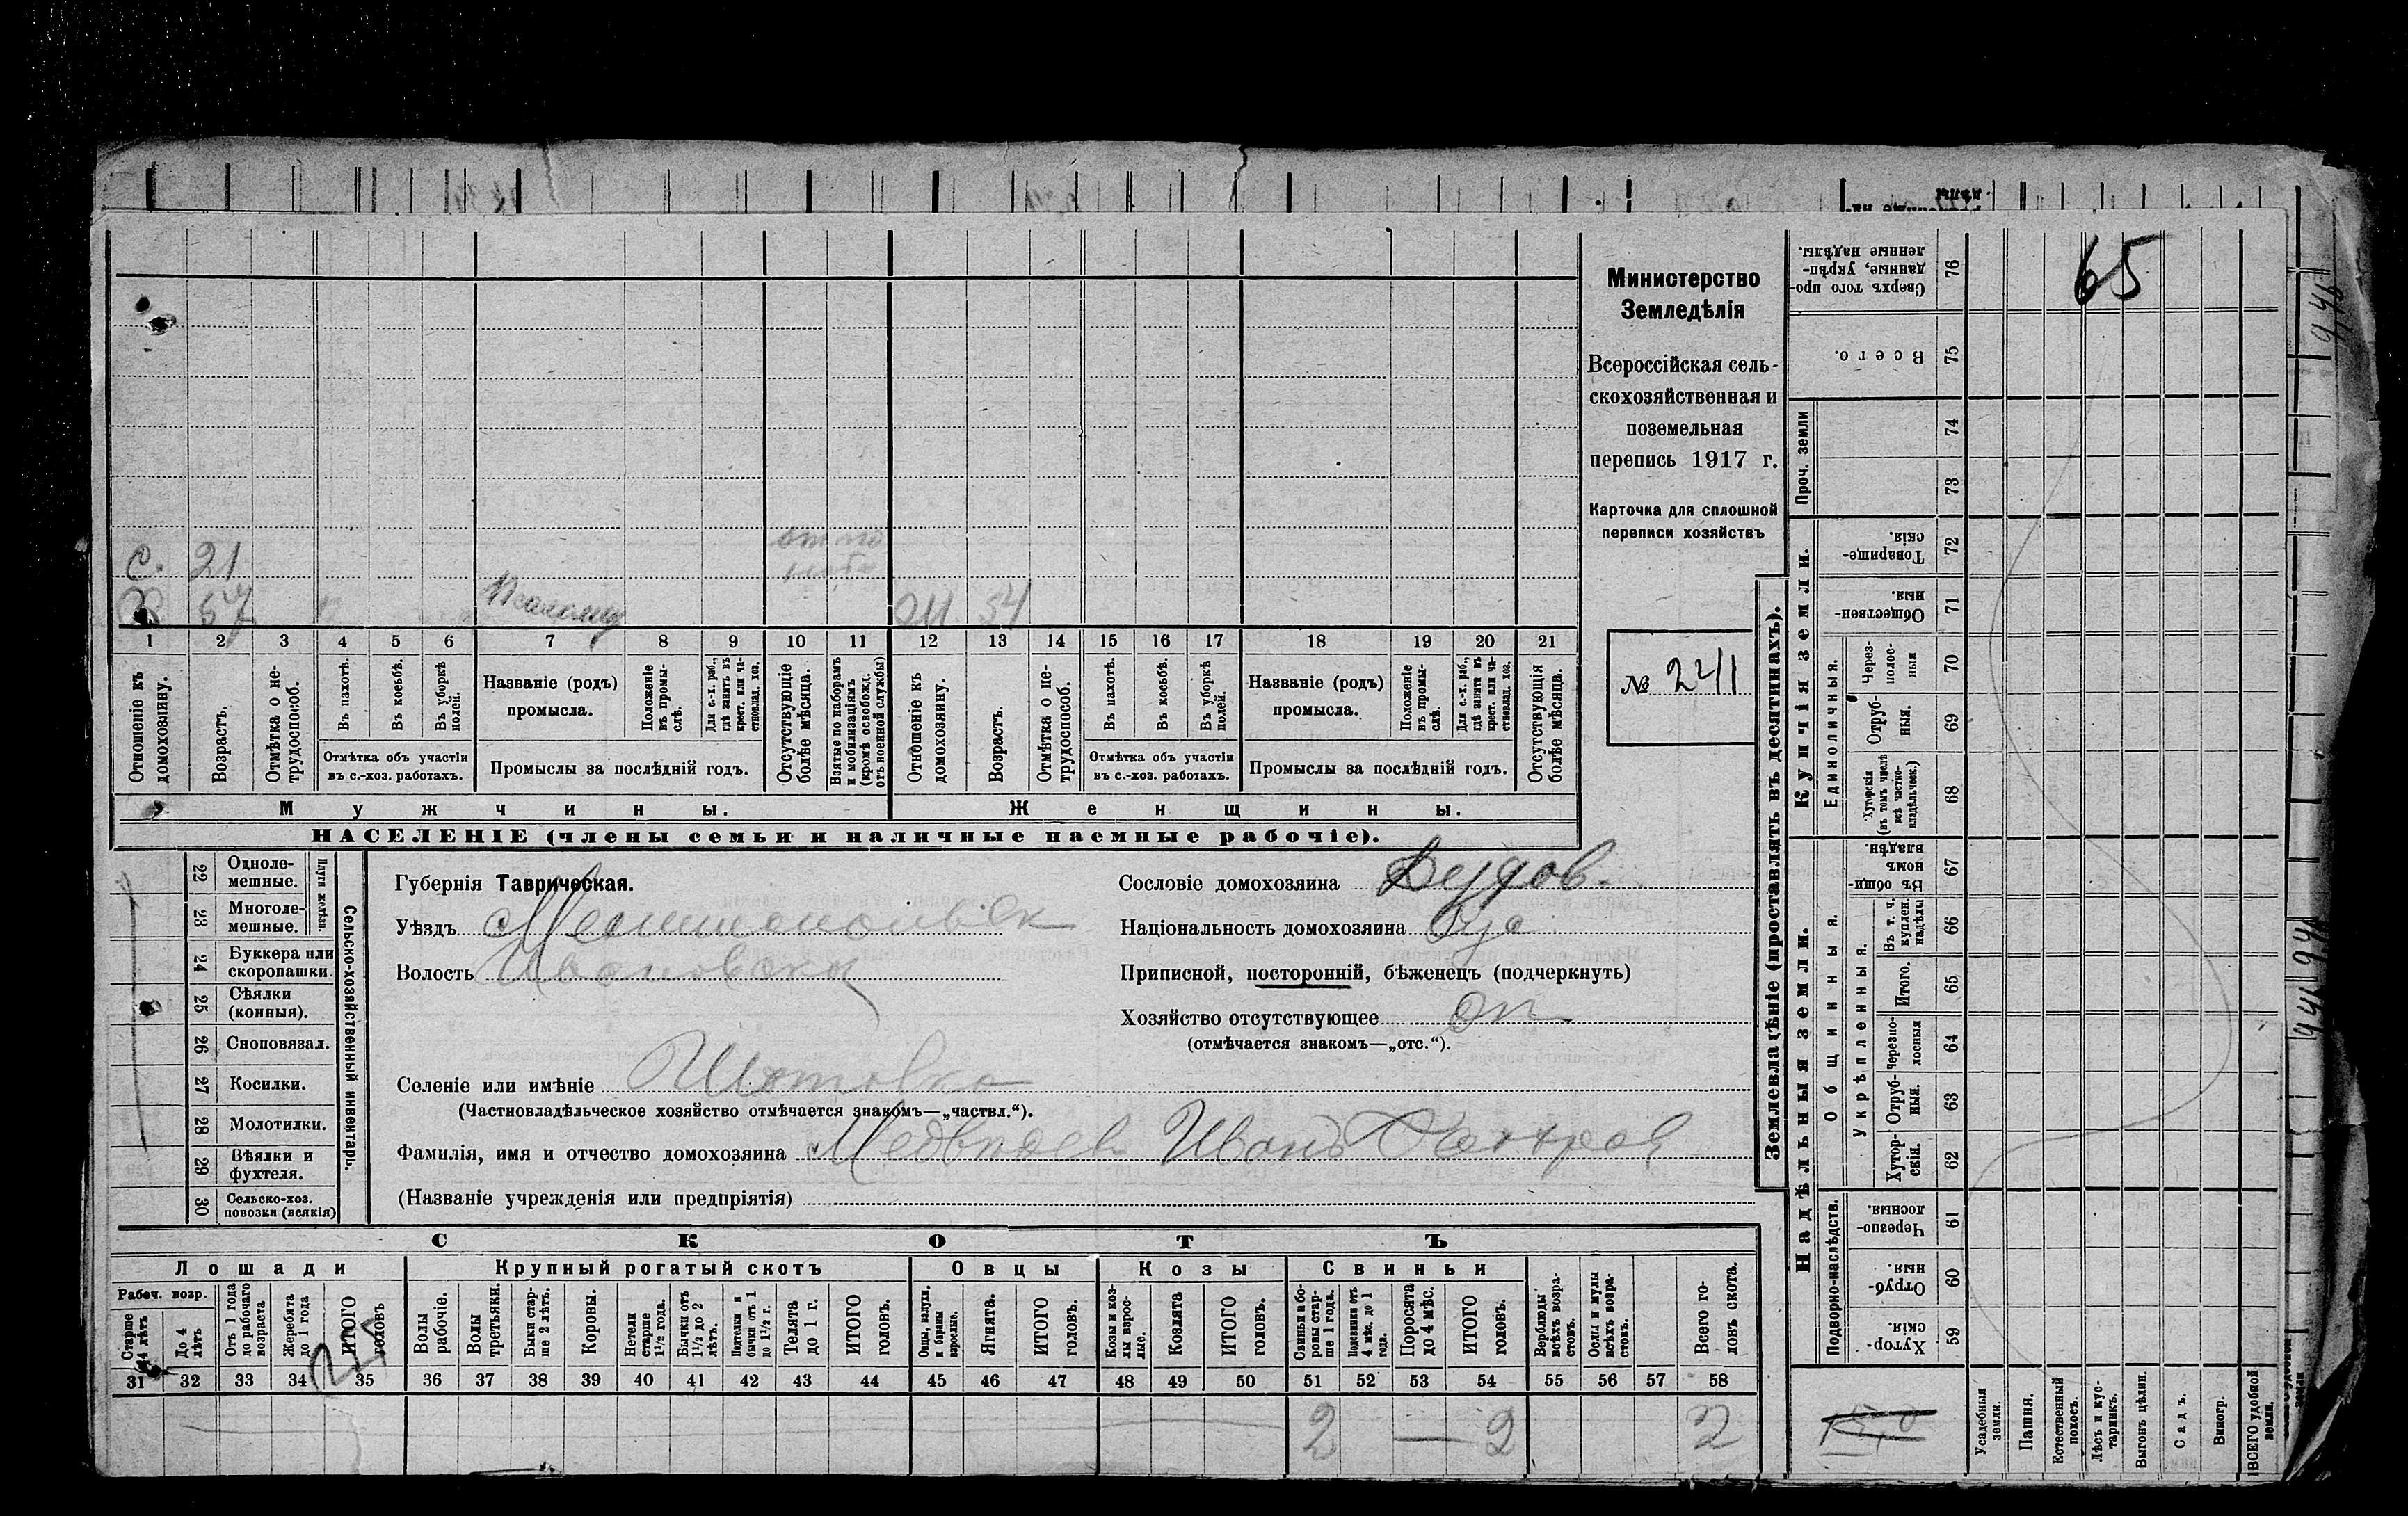 Министерство
Земледѣлія
Всероссійская сель-
скохозяйственная и
поземельная
перепись 1917 г.
Карточка для сплошной
переписи хозяйствъ
№ 2241
65
с. 21
Х 57 54
1 2 3 4 5 6 7 8 9 10 11 12 13 14 15 16 17 18 19 20 21
Отношеніе къ домохозяину.
Возрастъ.
Отмѣтка о не-трудоспособ.
Въ пахотѣ.
Въ косьбѣ.
Въ уборкѣ полей.
Отмѣтка объ участіи
въ с.-хоз. работахъ.
Названіе (родъ)
промысла.
Положеніе въ промы-слѣ.
Для с.-х. раб., гдѣ занятъ въ крест. или ча-стновлад. хоз.
Промыслы за послѣдній годъ.
Отсутствующіе болѣе мѣсяца.
Взятые по наборамъ и мобилизаціямъ (кромѣ освобожд. отъ военной службы)
Отношеніе къ домохозяину.
Возрастъ.
Отмѣтка о не-трудоспособ.
Въ пахотѣ.
Въ косьбѣ.
Въ уборкѣ полей.
Отмѣтка объ участіи
въ с.-хоз. работахъ.
Названіе (родъ)
промысла.
Положеніе въ промы-слѣ.
Для с.-х. раб., гдѣ занята въ крест. или ча-стновлад. хоз.
Промыслы за послѣдній годъ.
Отсутствующія болѣе мѣсяца.
Мужчины. Женщины.
НАСЕЛЕНІЕ (члены семьи и наличные наемные рабочіе).
Сельско-хозяйственный инвентарь.
Плуги желѣзн.
22 Одноле-мешные.
23 Многоле-мешные.
24 Буккера или скоропашки.
25 Сѣялки (конныя).
26 Сноповязал.
27 Косилки.
28 Молотилки.
29 Вѣялки и фухтеля.
30 Сельско-хоз. повозки (всякія)
Губернія Таврическая.
Уѣздъ
Волость
Сословіе домохозяина
Національность домохозяина
Приписной, посторонній, бѣженецъ (подчеркнуть)
Хозяйство отсутствующее
(отмѣчается знакомъ—„отс.“).
Селеніе или имѣніе
(Частновладѣльческое хозяйство отмѣчается знакомъ—„частвл.“).
Фамилія, имя и отчество домохозяина Иванъ
(Названіе учрежденія или предпріятія)
СКОТЪ
Лошади Крупный рогатый скотъ Овцы Козы Свиньи
Рабоч. возр.
Старше 4 лѣтъ
До 4 лѣтъ
Отъ 1 года до рабочаго возраста
Жеребята до 1 года
ИТОГО головъ
Волы рабочіе.
Волы третьяки.
Быки стар-ше 2 лѣтъ.
Коровы.
Нетели старше 1½ года.
Бычки отъ 1½ до 2 лѣтъ.
Подтелки и бычки отъ 1 до 1½ г.
Телята до 1 г.
ИТОГО головъ.
Овцы, валухи, и бараны взрослые.
Ягнята.
ИТОГО головъ.
Козы и коз-лы взрос-лые.
Козлята
ИТОГО головъ.
Свиньи и бо-ровы стар-ше 1 года.
Подсвинки отъ 4 мѣс. до 1 года.
Поросята до 4 мѣс.
ИТОГО головъ.
Верблюды всѣхъ возра-стовъ.
Ослы и мулы всѣхъ возра-стовъ.
Всего го-ловъ скота.
31 32 33 34 35 36 37 38 39 40 41 42 43 44 45 46 47 48 49 50 51 52 53 54 55 56 57 58
2 — 2 2
Землевладѣніе (проставлять въ десятинахъ).
Сверхъ того про-данные, укрѣп-ленные надѣлы. 76
Всего. 75
Проч. земли
74
73
Купчія земли.
Товарище-скія. 72
Обществен-ныя. 71
Единоличныя.
Через-полос-ныя 70
Отруб-ныя. 69
Хуторскія (въ томъ числѣ всѣ частно-владѣльческ.) 68
Надѣльныя земли.
Общинныя.
Въ общи-номъ владѣн. 67
Укрѣпленныя.
Въ т. ч. куплен. надѣлы 66
Итого. 65
Черезпо-лосныя 64
Отруб-ныя. 63
Хутор-скія. 62
Подворно-наслѣдств.
Черезпо-лосныя. 61
Отруб-ныя. 60
Хутор-скія. 59
Усадебныя земли.
Пашня.
Естественный покосъ.
Лѣсъ и кус-тарникъ.
Выгонъ цѣлин.
Садъ.
Виногр.
ВСЕГО удобной земли.